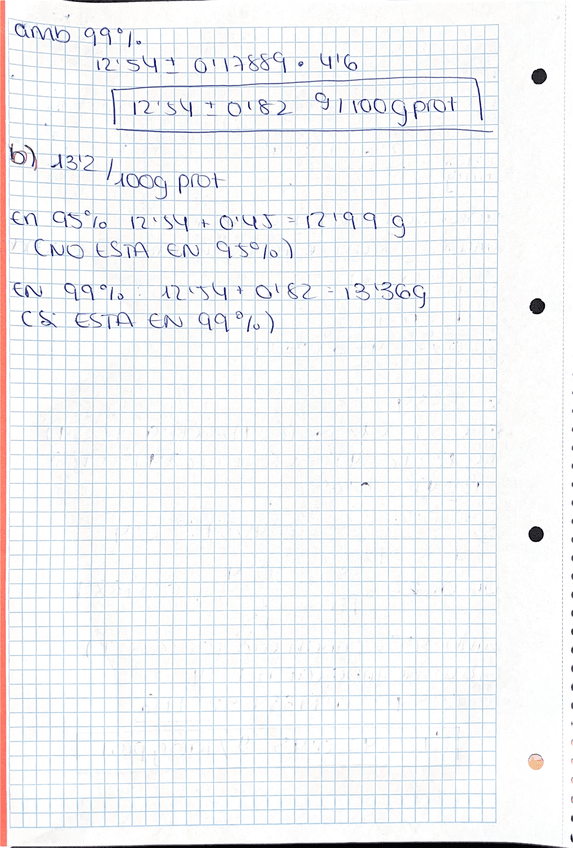 amb 99%
12'54 ± 0'17889 • 4'6
12'54 ± 0'82 g/100g prot
b) 13'2/100g prot
En 95% 12'54 + 0'45 = 12'99 g
(NO ESTA EN 95%)
EN 99% 12'54 + 0'82 = 13'36g
(Si ESTA EN 99%)